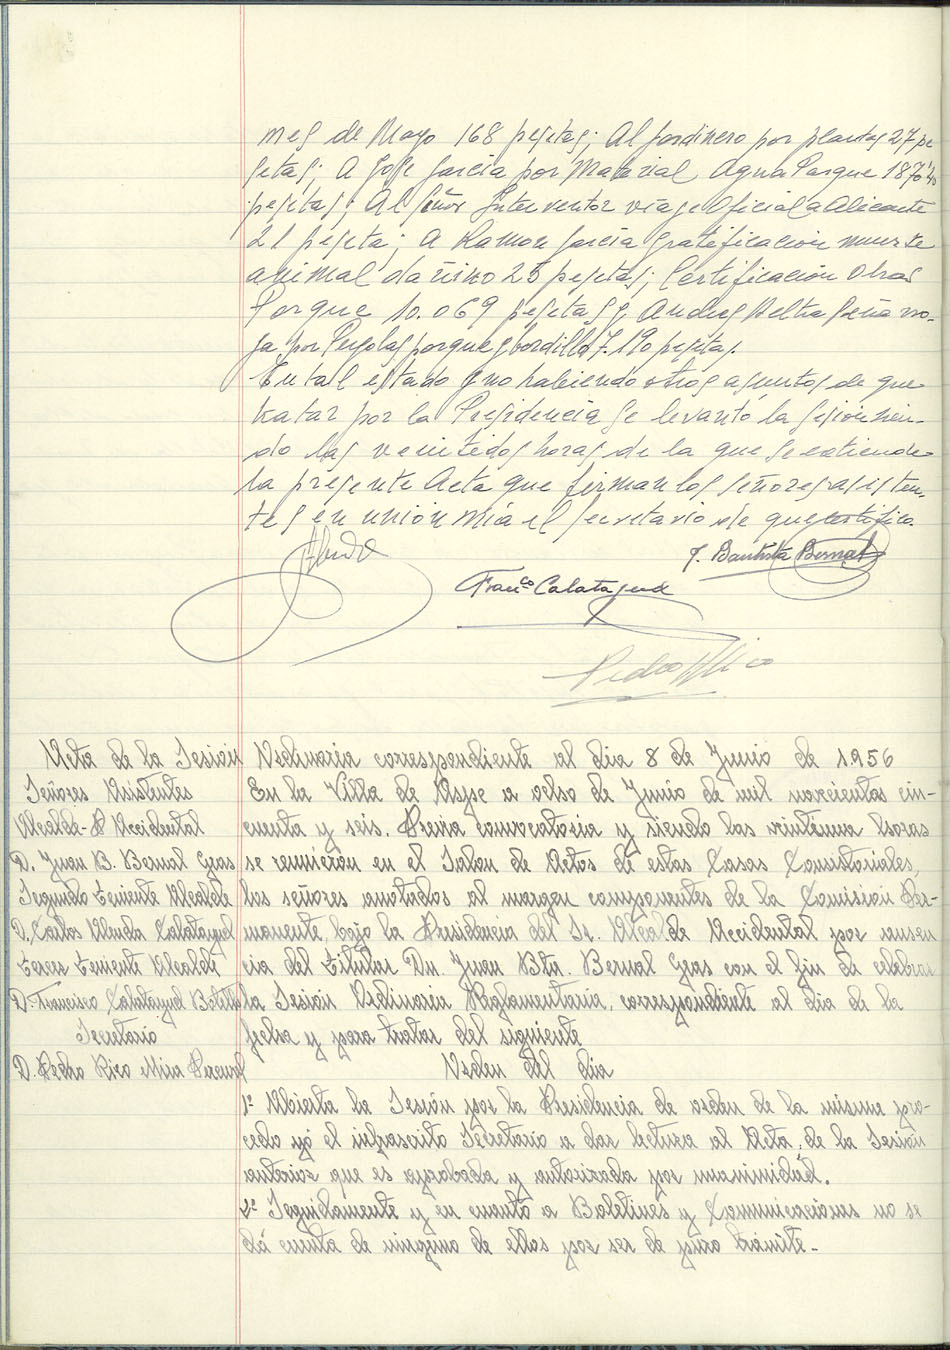 mes de Mayo 168 pesetas; Al Jardinero por plantas 27 pe
setas; A Jose Garcia por Material Agua Parque 1870'40
pesetas; Al Señor Interventor viaje Oficial a Alicante
21 peseta; A Ramon Garcia gratificacion muerte
animal dañino 25 pesetas; Certificacion Obras
Parque 10.069 pesetas y Andres Beltra Peñarro-
ja por Pergolas parque y bordillo 7.190 pesetas.
En tal estado y no habiendo otros asuntos de que
tratar por la Presidencia se levantó la sesion sien-
do las veintidos horas de la que se extiende
la presente Acta que firman los señores asisten-
tes en union mía el Secretario de que certifico.
J. Bautista Bernal
Franco Calatayud
Pedro Rico
Acta de la Sesion Ordinaria correspondiente al dia 8 de Junio de 1.956
Señores Asistentes
Alcalde-P Accidental
D. Juan B. Bernal Gras
Segundo Teniente Alcalde
D. Carlos Calatayud
Tercer Teniente Alcalde
D. Francisco Calatayud Botella
Secretario
D. Pedro Rico Mira
En la Villa de Aspe a ocho de Junio de mil novecientos cin-
cuenta y seis. Previa convocatoria y siendo las veintiuna horas
se reunieron en el Salon de Actos de estas Casas Consistoriales,
los señores anotados al margen componentes de la Comision Per-
manente, bajo la Presidencia del Sr. Alcalde Accidental por ausen
cia del Titular Dn. Juan Bta. Bernal Gras con el fin de celebrar
la Sesion Ordinaria Reglamentaria, correspondiente al dia de la
fecha y para tratar del siguiente
Orden del dia
1º Abierta la Sesión por la Presidencia de orden de la misma pro-
cedo yó el infrascrito Secretario a dar lectura al Acta de la Sesion
anterior que es aprobada y autorizada por unanimidad.
2º Seguidamente y en cuanto a Boletines y Comunicaciones no se
dá cuenta de ninguno de ellos por ser de puro trámite.-